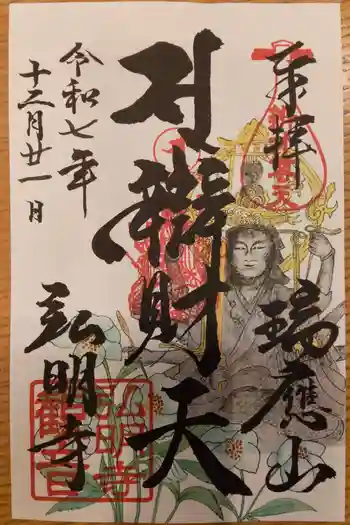 奉拝
瑞應山
辯財天
令和七年
十二月廿一日
弘明寺
弘明寺
觀音